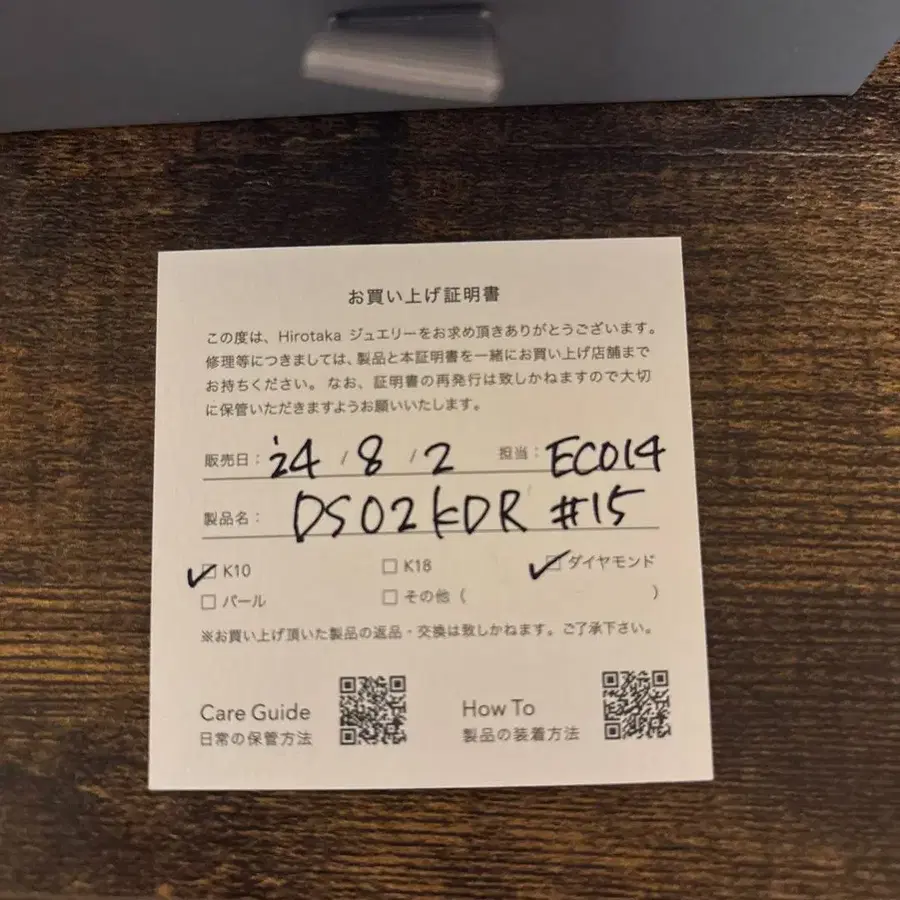 お買い上げ証明書
この度は、Hirotaka ジュエリーをお求め頂きありがとうございます。
修理等につきましては、製品と本証明書を一緒にお買い上げ店舗まで
お持ちください。なお、証明書の再発行は致しかねますので大切
に保管いただきますようお願いいたします。
販売日: '24 / 8 / 2 担当: EC014
製品名: DS02KDR #15
☑ K10 ☐ K18 ☑ ダイヤモンド
☐ パール ☐ その他 ( )
※お買い上げ頂いた製品の返品・交換は致しかねます。ご了承下さい。
Care Guide How To
日常の保管方法 製品の装着方法